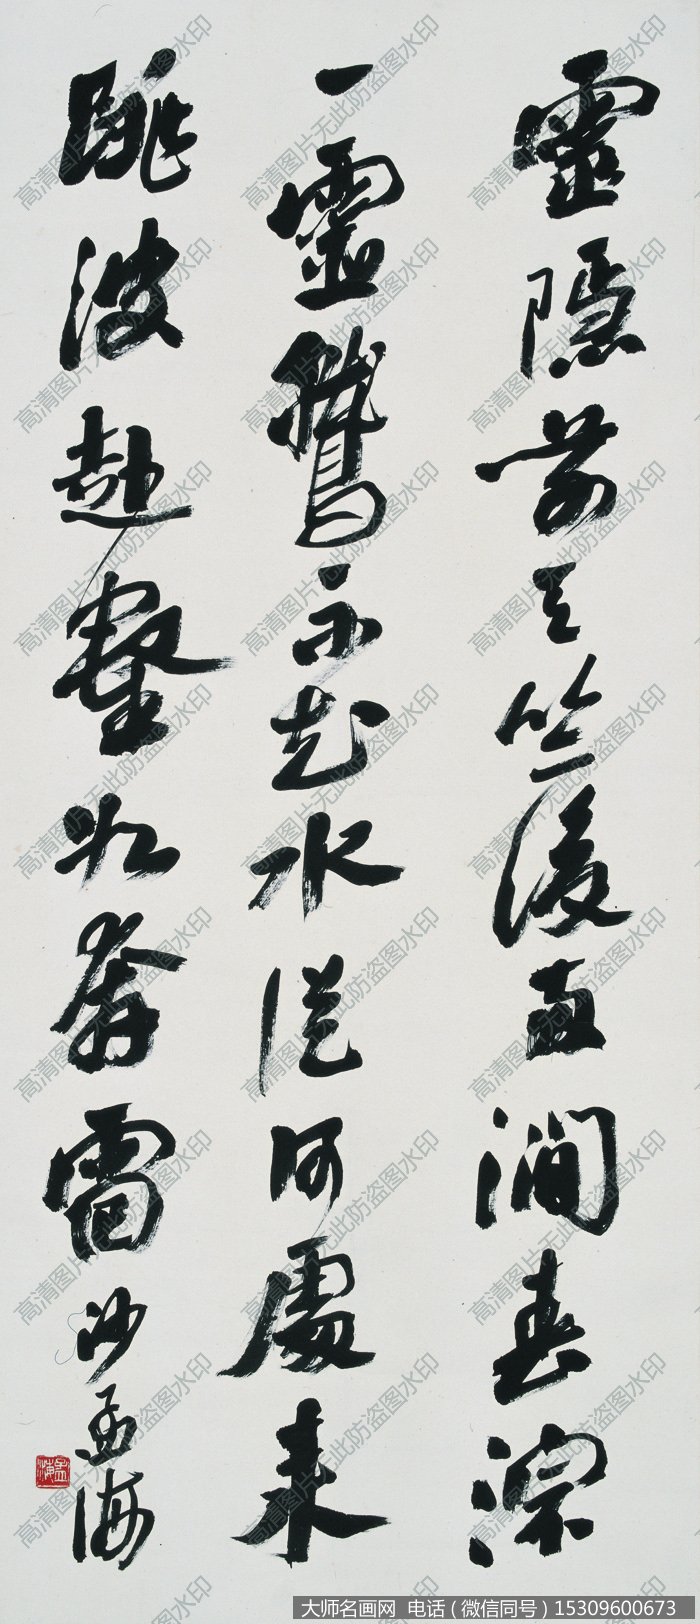 靈隱前天竺後兩澗春淙
一靈鷲不知水從何處來
跳波赴壑如奔雷 沙孟海
孟海
高清图片无此防盗图水印
大师名画网 电话（微信同号）15309600673